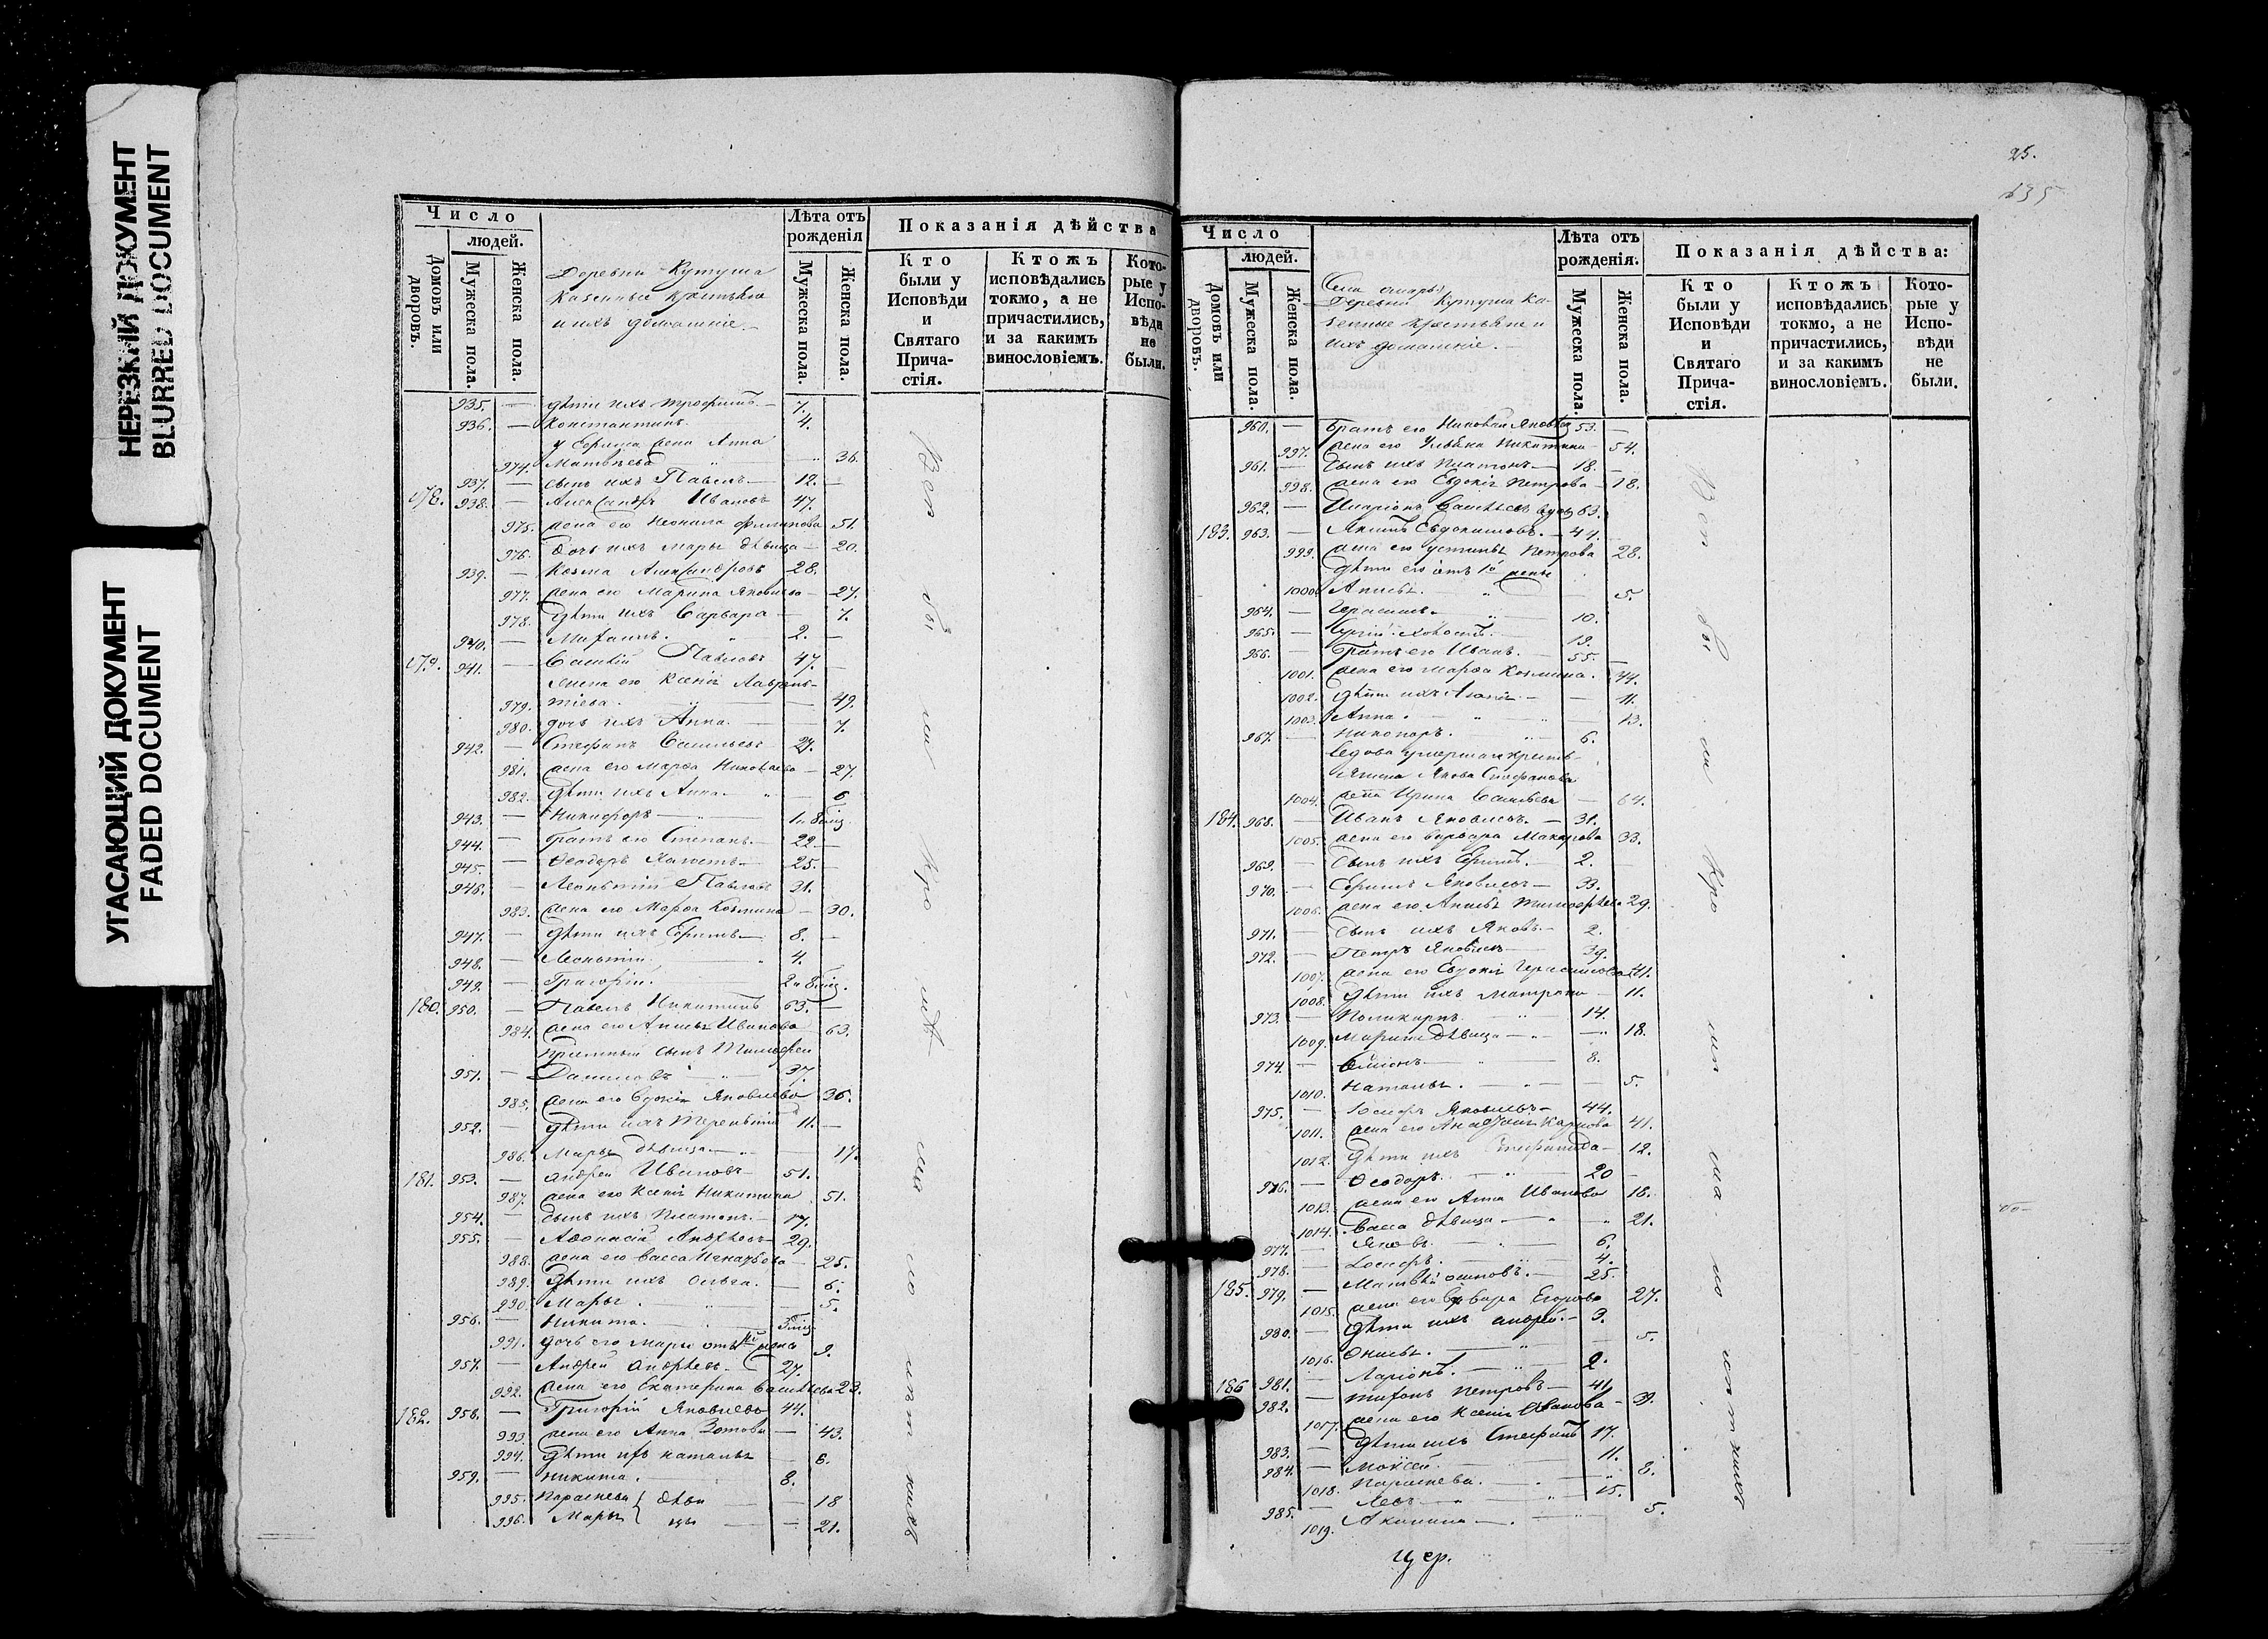 НЕРЕЗКИЙ ДОКУМЕНТ
BLURRED DOCUMENT
УГАСАЮЩИЙ ДОКУМЕНТ
FADED DOCUMENT
Число
людей.
Домовъ или дворовъ.
Мужеска пола.
Женска пола.
Деревни Кутуша
казенные крестьяне
и ихъ домашніе.
Лѣта отъ рожденія
Мужеска пола.
Женска пола.
Показанія дѣйства
Кто были у Исповѣди и Святаго Причастія.
Ктожъ исповѣдались токмо, а не причастились, и за какимъ винословіемъ.
Которые у Исповѣди не были.
935. — дѣти ихъ Трофимъ — 7.
936. — Константинъ 4.
у Ефима жена Анна
974. Матвѣева 36.
937. — сынъ ихъ Павелъ — 12. —
178. 938. — Александръ Ивановъ 47.
975. жена его Неонила Филипова 51.
976. дочь ихъ Марья дѣвица — 20.
939. — Козма Александровъ 28.
977. жена его Марина Яковлева — 27.
978. дѣти ихъ Варвара — 7.
940. — Михаилъ. 2. —
179. 941. — Василій Павловъ 47. —
жена его Ксенія Лаврень-
979. тіева. 49.
980. дочь ихъ Анна. — 7.
942. — Стефанъ Васильевъ 27.
981. жена его Марѳа Николаева — 27.
982. дѣти ихъ Анна — 6
943. — Никифоръ —
944. — братъ его Степанъ. — 22 —
945. — Ѳеодоръ 25. —
946. — Леонтий Павловъ 31.
983. жена его Марѳа Козмина — 30.
947. — дѣти ихъ Ефимъ — 8. —
948. — Леонтий 4.
949. — Григорій.
180. 950. — Павелъ Никитинъ 63. —
984. жена его Анисья Иванова 63.
приемный сынъ Тимофей
951. — Даниловъ 37.
985. жена его Евдокія Яковлева 36.
952. — дѣти ихъ Терентий 11. —
986. Марья дѣвица — 17.
181. 953. — Андрей Ивановъ 51.
987. жена его Ксенія Никитина 51.
954. — сынъ ихъ Платонъ. — 17.
955. — Аѳонасій Андреевъ 29.
988. жена его Васса Игнатьева — 25.
989. дѣти ихъ Ольга. — 6.
990. Марья. 5.
956. — Никита.
991. дочь его Марья отъ 1й жены 9.
957. — Андрей Андреевъ. 27.
992. жена его Екатерина Васильева 23.
182. 958. — Григорій Яковлевъ 44.
993. жена его Анна Зотова — 43.
994. дѣти ихъ Наталья 6.
959. — Никита. 8.
995. Парасκева } дѣви — 18
996. Марья } цы — 21.
25.
135
Число
людей.
Домовъ или дворовъ.
Мужеска пола.
Женска пола.
Деревни Кутуша ка-
зенные крестьяне и
ихъ домашніе. —
Лѣта отъ рожденія.
Мужеска пола.
Женска пола.
Показанія дѣйства:
Кто были у Исповѣди и Святаго Причастія.
Ктожъ исповѣдались токмо, а не причастились, и за какимъ винословіемъ.
Которые у Исповѣди не были.
960. — братъ его Николай Яковлевъ 53. —
997. жена его Ульяна Никитина 54.
961. — сынъ ихъ Платонъ — 18. —
998. жена его Евдокія Петрова — 18.
962. — Иларіонъ Васильевъ вдовъ 63.
183. 963. — Якимъ Евдокимовъ. — 44.
999. жена его Устинья Петрова 28.
дѣти его отъ 1й жены
1000. Анисья. 5.
964. — Герасимъ. 10.
965. — 19.
966. — братъ его Иванъ. — 55. —
1001. жена его Марѳа Козмина. 44.
1002. дѣти ихъ — 11.
1003. Анна. 13.
967. — Никоноръ. 6.
вдова умершаго крест-
янина Якова Стефанова
1004. жена Ирина Васильева — 64.
184. 968. — Иванъ Яковлевъ. — 31.
1005. жена его Варвара Макарова 33.
969. — сынъ ихъ Ефимъ. — 2.
970. — Ефимъ Яковлевъ — 33.
1006. жена его Анисья Тимофѣева 29.
971. — сынъ ихъ Яковъ. — 2.
972. — Петръ Яковлевъ — 39.
1007. жена его Евдокія Герасимова 41.
1008. дѣти ихъ Матрона — 11.
973. — Поликарпъ. 14.
1009. Марина дѣвица — 18.
974. — Симіонъ 8.
1010. Наталья. 5.
975. — Іосифъ Яковлевъ — 44.
1011. жена его Карпова 41.
1012. дѣти ихъ Степанида — 12.
976. — Ѳеодоръ. 20
1013. жена его Анна Иванова 18.
1014. Васса дѣвица — 21.
977. — Яковъ. 6.
978. — Іосифъ. 4.
185. 979. — Матвѣй Осиповъ. 25.
1015. жена его Варвара Егорова 27.
980. — дѣти ихъ Андрей. — 3.
1016. Анисья. 5.
981. — Ларіонъ. 2.
186 982. — Тихонъ Петровъ — 41
1017. жена его Ксенія Иванова — 39.
983. — дѣти ихъ Стефанъ 17.
984. — Моѵсей 11.
1018. Парасκева. 8.
985. — Левъ — 15.
1019. Акилина — 5.